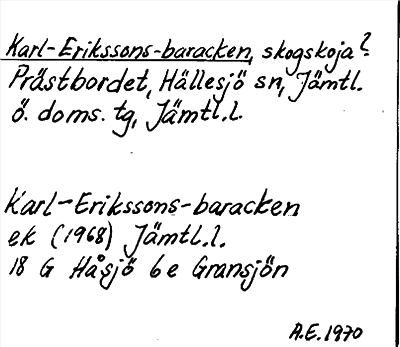 Karl-Erikssons-baracken, skogskoja?
Prästbordet, Hällesjö sn, Jämtl.
ö. doms. tg, Jämtl.l.
Karl-Erikssons-baracken
ek (1968) Jämtl.l.
18 G Håsjö 6e Gransjön
A.E. 1970